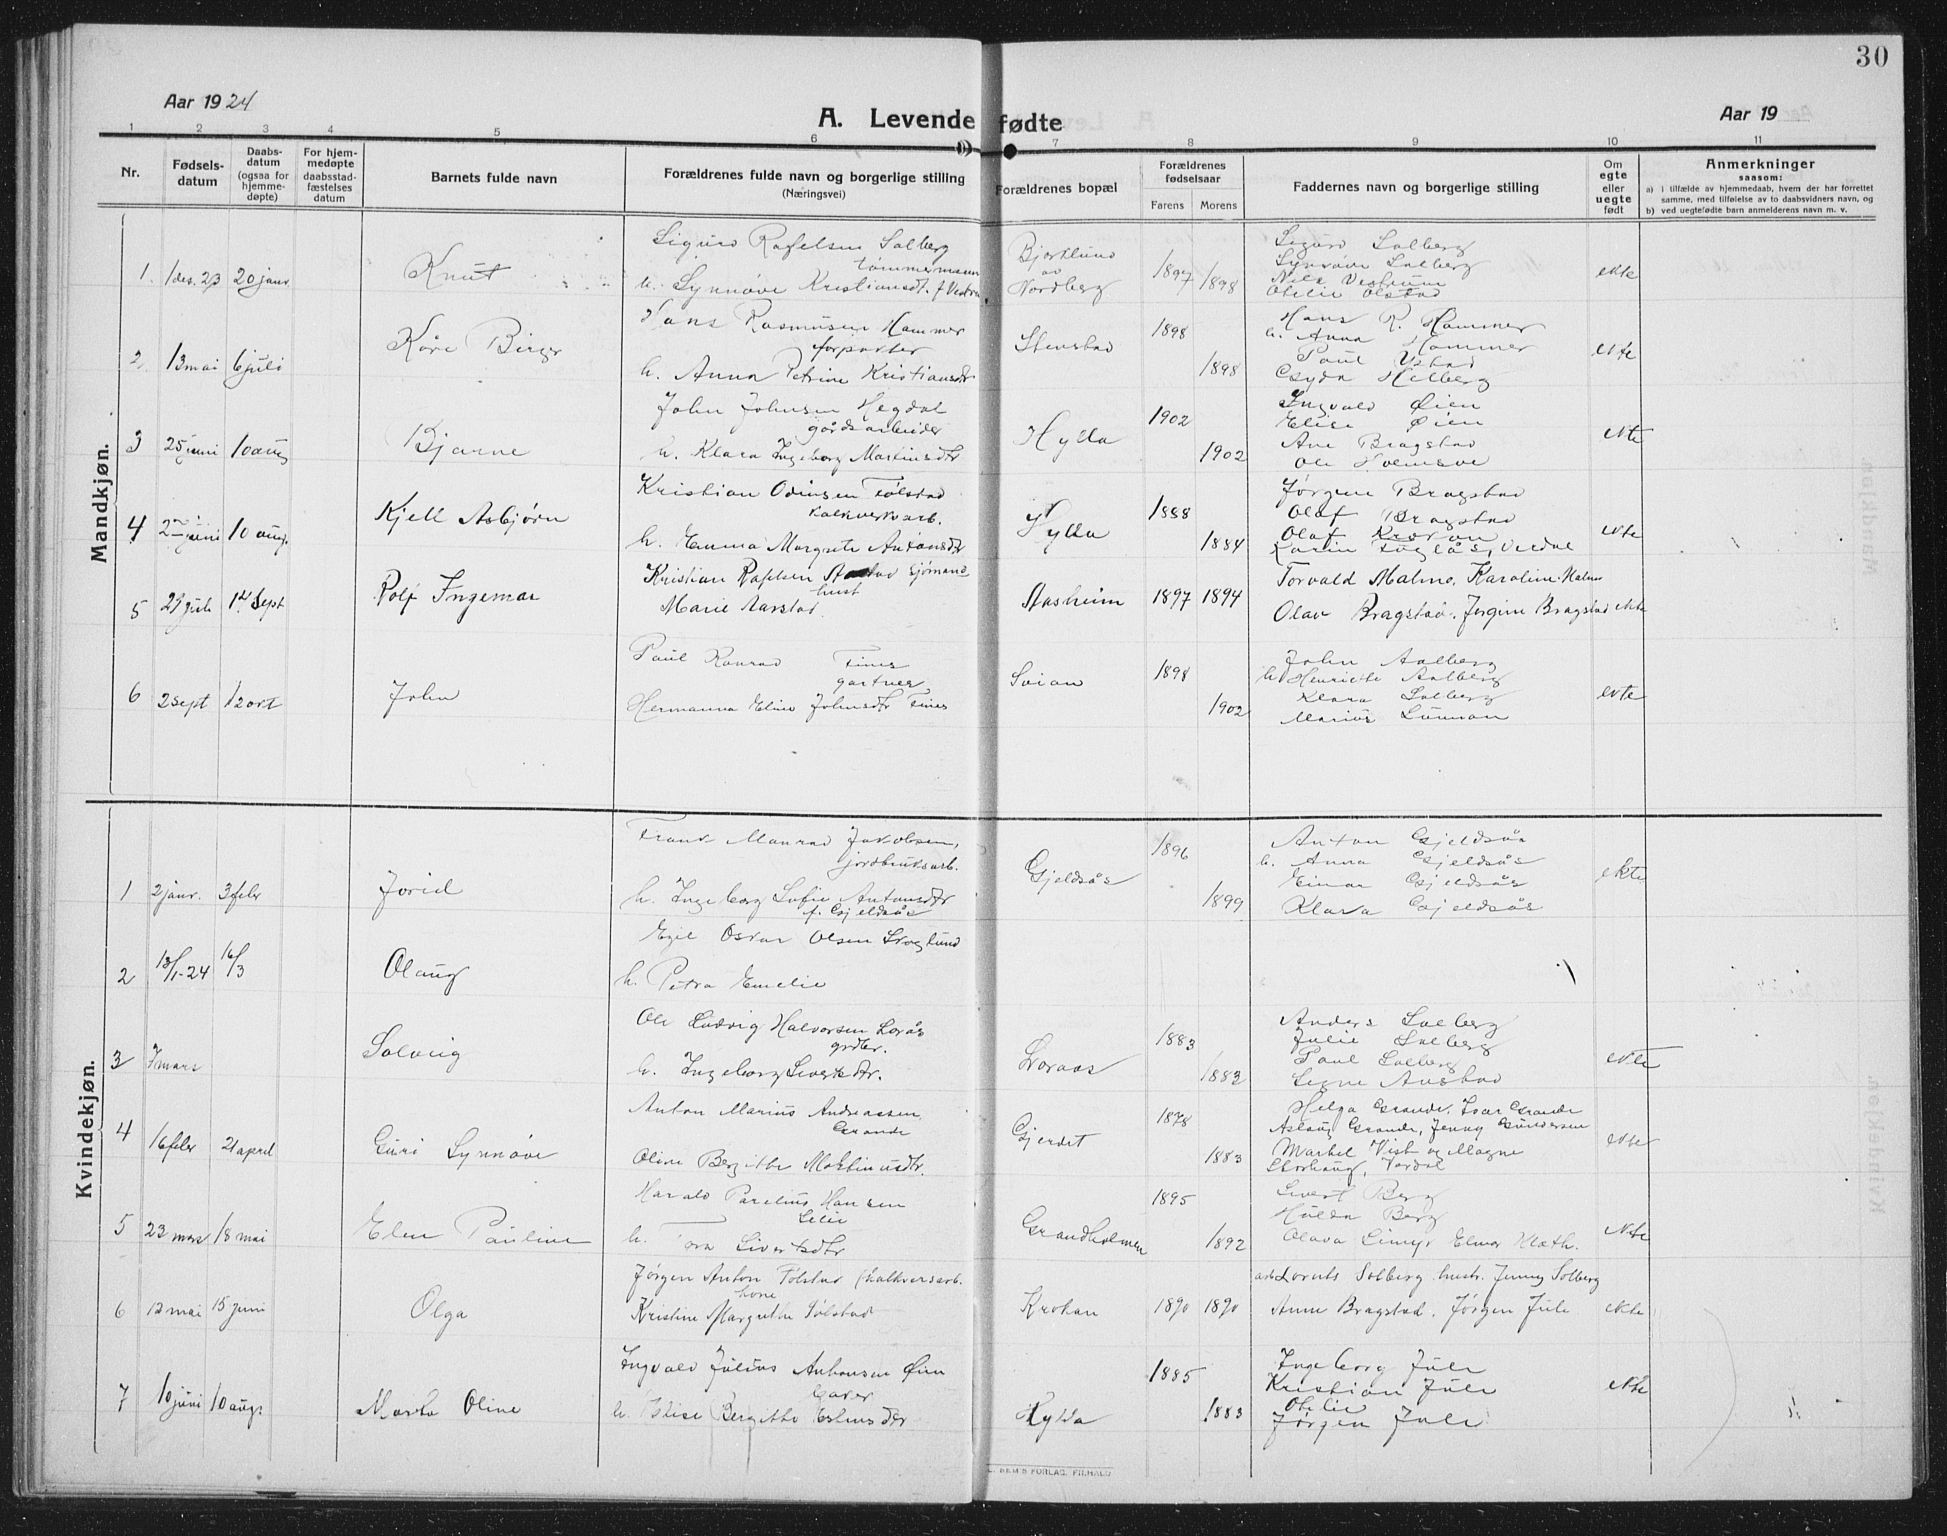 30
Aar 1924
A. Levende fødte
Aar 19
1 2 3 4 5 6 7 8 9 10 11
Nr.
Fødsels-
datum
Daabs-
datum
(ogsaa for
hjemme-
døpte)
For hjem-
medøpte
daabsstad-
fæstelses
datum
Barnets fulde navn
Forældrenes fulde navn og borgerlige stilling
(Næringsvei)
Forældrenes bopæl
Forældrenes
fødselsaar
Farens Morens
Faddernes navn og borgerlige stilling
Om
egte
eller
uegte
født
Anmerkninger
saasom:
a) i tilfælde av hjemmedaab, hvem der har forrettet
samme, med tilføielse av to daabsvidners navn, og
b) ved uegtefødte barn anmelderens navn m. v.
Mandkjøn.
1. 1 des. 23 20 janr Knut
Sigurd Rafelsen Salberg
tømmermann
h. Synnøve Kristiansdt. f. Vestrum
Bjørklund
av
Nordberg
1897 1898
Sigurd Salberg
Synnøve Salberg
Nils Vestrum
Otelie Olstad
ekte
2 13 mai 6 juli Kåre Birger
Hans Rasmusen Hammer
forpakter
h. Anna Petrine Kristiansdtr
Stenstad
1898 1898
Hans R. Hammer
h. Anna Hammer
Paul Ystad
Gyda Hilberg
ekte
3 25 juni 10 aug Bjarne
John Johnsen Hegdal
gårdsarbeider
h. Klara Ingeborg Martinsdtr
Hylla
1902 1902
Ingvald Øien
Elise Øien
Ane Bragstad
Ole Holmsve
ekte
4 2 juni 10 aug. Kjell Asbjørn
Kristian Odinsen Følstad
kalkverksarb.
h. Emma Margrete Antonsdtr
Hylla
1888 1884
Jørgine Bragstad
Olaf Bragstad
Olaf
Karin Foglås, Verdal
ekte
5 21 juli 14 sept Rolf Ingemar
Kristian Rafelsen Aarstad sjømand
hust
Marie Aarstad
Aasheim 1897 1894
Torvald Malmo. Karoline Malmo
Olav Bragstad. Jørgine Bragstad ekte
6 2 sept 12 okt John
Paul Konrad Fines
gartner
Hermanna Eline Johnsdtr Fines
Svian
1898 1902
John Aalberg
h Henriette Aalberg
Klara Salberg
Marius Lunnan
ekte
Kvindekjøn.
1 2 janr. 3 febr Jorid
Frank Monrad Jakobsen,
jordbruksarb.
h. Ingeborg Sofie Antonsdtr
f. Gjeldsås
Gjeldsås
1896 1899
Anton Gjeldsås
h. Anna Gjeldsås
Einar Gjeldsås
Klara Gjeldsås
ekte
2 13/1-24 16/3 Olaug
Egil Oskar Olsen Skoglund
h. Petra Emelie
3 7 mars Solveig
Ole Ludvig Halvorsen Lorås
grdbr.
h. Ingeborg Sivertsdtr.
Loraas
1883 1882
Anders Salberg
Julie Salberg
Paul Salberg
Signe Austad
ekte
4 16 febr 21 april Guri Synnøve
Anton Marius Andreassen
Grande
Oline Bergitte Martinusdtr.
Gjerdet
1878 1883
Helga Grande, Ivar Grande
Aslaug Grande, Jenny Gundersen
Markel Vist og Magne
Storhaug, Verdal
ekte
5 23 mars 18 mai Elen Pauline
Harald Parelius Hansen
Lilie
h. Tora Sivertsdtr
Grandholmen
1895 1892
Sivert Berg
Hulda Berg
Olava Limyr Elmer Klæth.
ekte
6 12 mai 15 juni Olga
Jørgen Anton Følstad kalkverksarb.
kone
Kristine Margrethe Følstad
Krokan 1890 1890
arb Lornts Solberg hustr. Jenny Solberg
Anne Bragstad. Jørgen Jule ekte
7 10 juni 10 aug. Marta Oline
Ingvald Julius Antonsen Øien
h. Elise Bergitte Estensdtr
Hylla
1885 1883
Ingeborg Jule
Kristian Jule
Otelie
Jørgen Jule
ekte
SEM'S FORLAG, FR.HALD